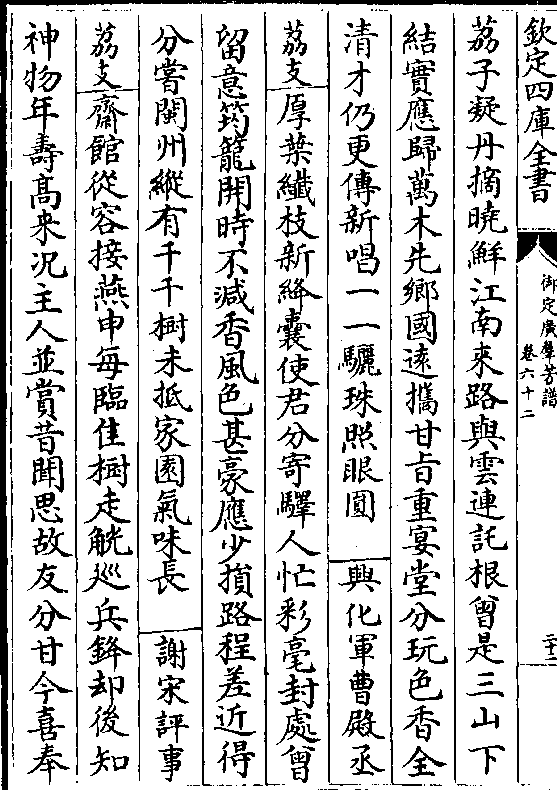 欽定四庫全書
御定廣羣芳譜
卷六十二
二十二
荔子凝丹摘曉鮮江南來路與雲連託根曾是三山下
結實應歸萬木先鄉國逺攜甘旨重宴堂分玩色香全
清才仍更傳新唱一一驪珠照眼圓　興化軍曹殿丞
荔支厚葉纎枝新絳囊使君分寄驛人忙彩毫封處曾
留意筠籠開時不減香風色甚豪應少損路程差近得
分嘗閩州縱有千千樹未抵家園氣味長　謝宋評事
荔支齋館從容接燕申每臨佳樹走觥廵兵鋒却後知
神物年壽髙來况主人並賞昔聞思故友分甘今喜奉